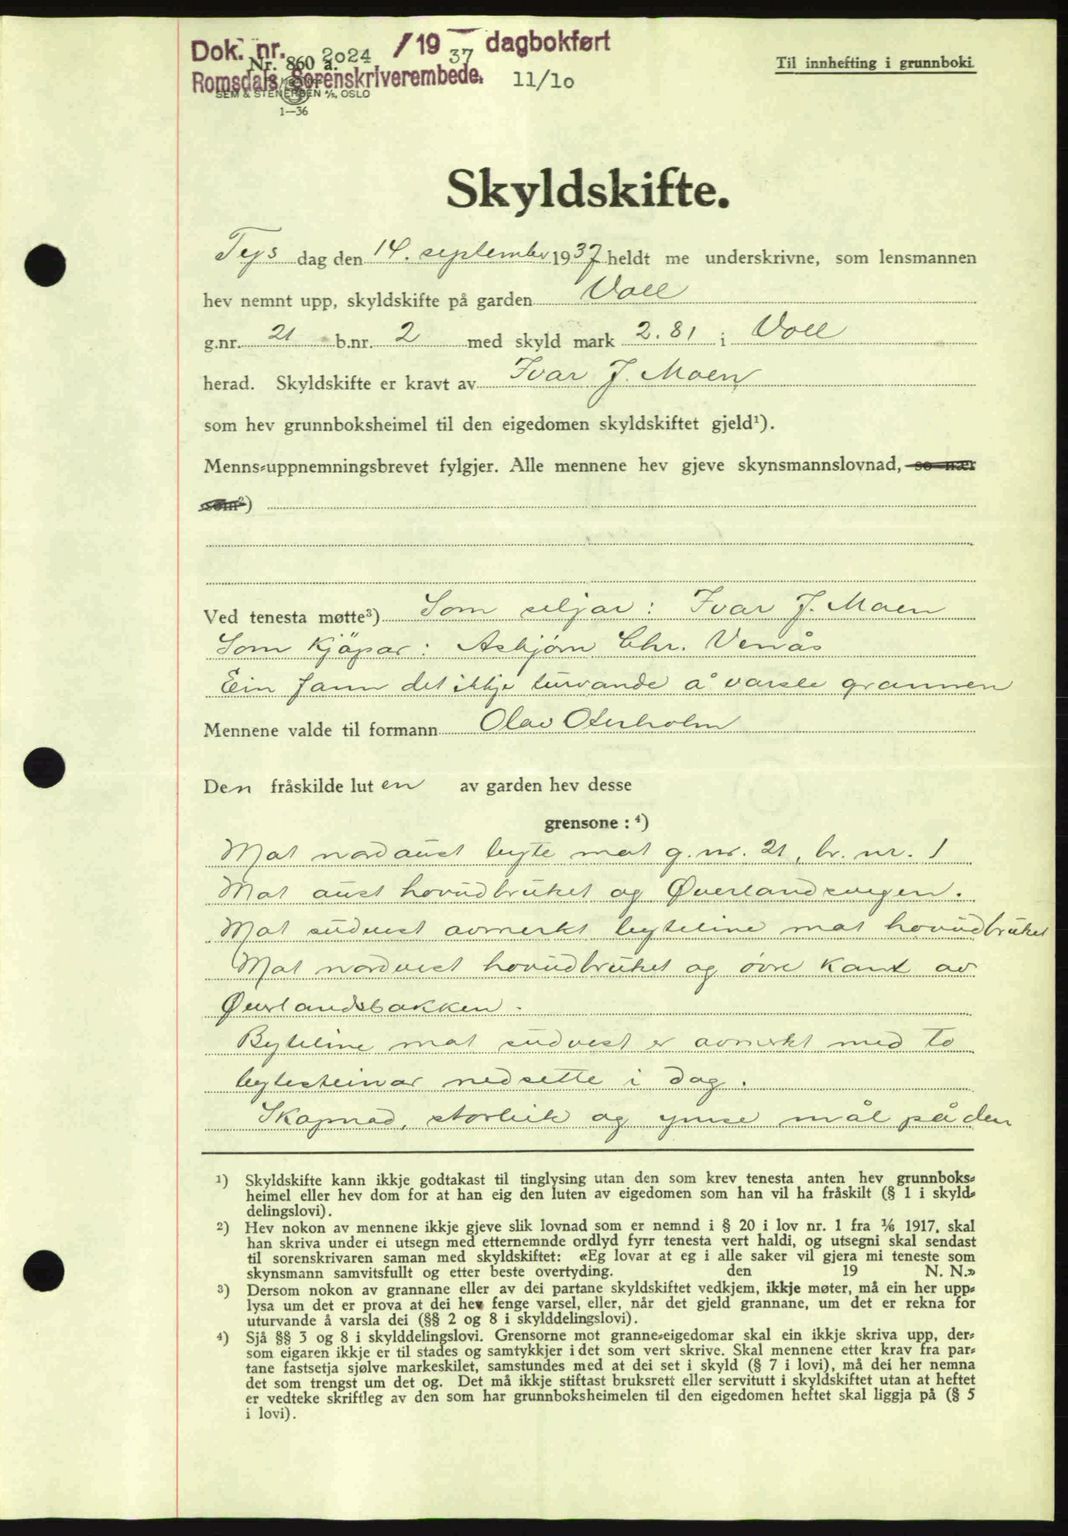 Dok. nr. 2024 /1937 dagbokført
Nr. 860 a.
Romsdals Sorenskriverembede. 11/10
SEM & STENERSEN A/S, OSLO
1—36
Til innhefting i grunnboki.
Skyldskifte.
Tys dag den 14. september 1937 heldt me underskrivne, som lensmannen
hev nemnt upp, skyldskifte på garden Voll
g.nr. 21 b.nr. 2 med skyld mark 2.81 i Voll
herad. Skyldskifte er kravt av Ivar J. Moen
som hev grunnboksheimel til den eigedomen skyldskiftet gjeld¹).
Menns-uppnemningsbrevet fylgjer. Alle mennene hev gjeve skynsmannslovnad, so nær
som²)
Ved tenesta møtte³) Som seljar: Ivar J. Moen
Som kjöpar: Asbjørn Chr. Venås
Ein fann det ikkje turvande å varsle grannen
Mennene valde til formann Olav Oterholm
Den fråskilde luten av garden hev desse
grensone: ⁴)
Mot nordaust byte mot g.nr. 21, br. nr. 1
Mot aust hovudbruket og Øverlandsvegen.
Mot sudvest avmerkt byteline mot hovudbruket
Mot nordvest hovudbruket og övre kant av
Øverlandsbakken.
Byteline mot sudvest er avmerkt med to
bytesteinar nedsette i dag.
Skapnad, storleik og ymse mål på den
¹) Skyldskifte kann ikkje godtakast til tinglysing utan den som krev tenesta anten hev grunnboks-
heimel eller hev dom for at han eig den luten av eigedomen som han vil ha fråskilt (§ 1 i skyld-
delingslovi).
²) Hev nokon av mennene ikkje gjeve slik lovnad som er nemnd i § 20 i lov nr. 1 fra ¹/₆ 1917, skal
han skriva under ei utsegn med etternemnde ordlyd fyrr tenesta vert haldi, og utsegni skal sendast
til sorenskrivaren saman med skyldskiftet: «Eg lovar at eg i alle saker vil gjera mi teneste som
skynsmann samvitsfullt og etter beste overtyding. den 19 N. N.»
³) Dersom nokon av grannane eller av dei partane skyldskiftet vedkjem, ikkje møter, må ein her upp-
lysa um det er prova at dei hev fenge varsel, eller, når det gjeld grannane, um det er rekna for
uturvande å varsla dei (§§ 2 og 8 i skylddelingslovi).
⁴) Sjå §§ 3 og 8 i skylddelingslovi. Grensorne mot granne-eigedomar skal ein ikkje skriva upp, der-
som eigaren ikkje er til stades og samtykkjer i det som vert skrive. Skal mennene etter krav fra par-
tane fastsetja sjølve markeskilet, samstundes med at dei set i skyld (§ 7 i lovi), må dei her nemna
det som trengst um det og. Det må ikkje stiftast bruksrett eller servitutt i skyldskiftet utan at heftet
er vedteke skriftleg av den som har grunnboksheimelen til den eigedomen heftet skal liggja på (§ 5
i lovi).